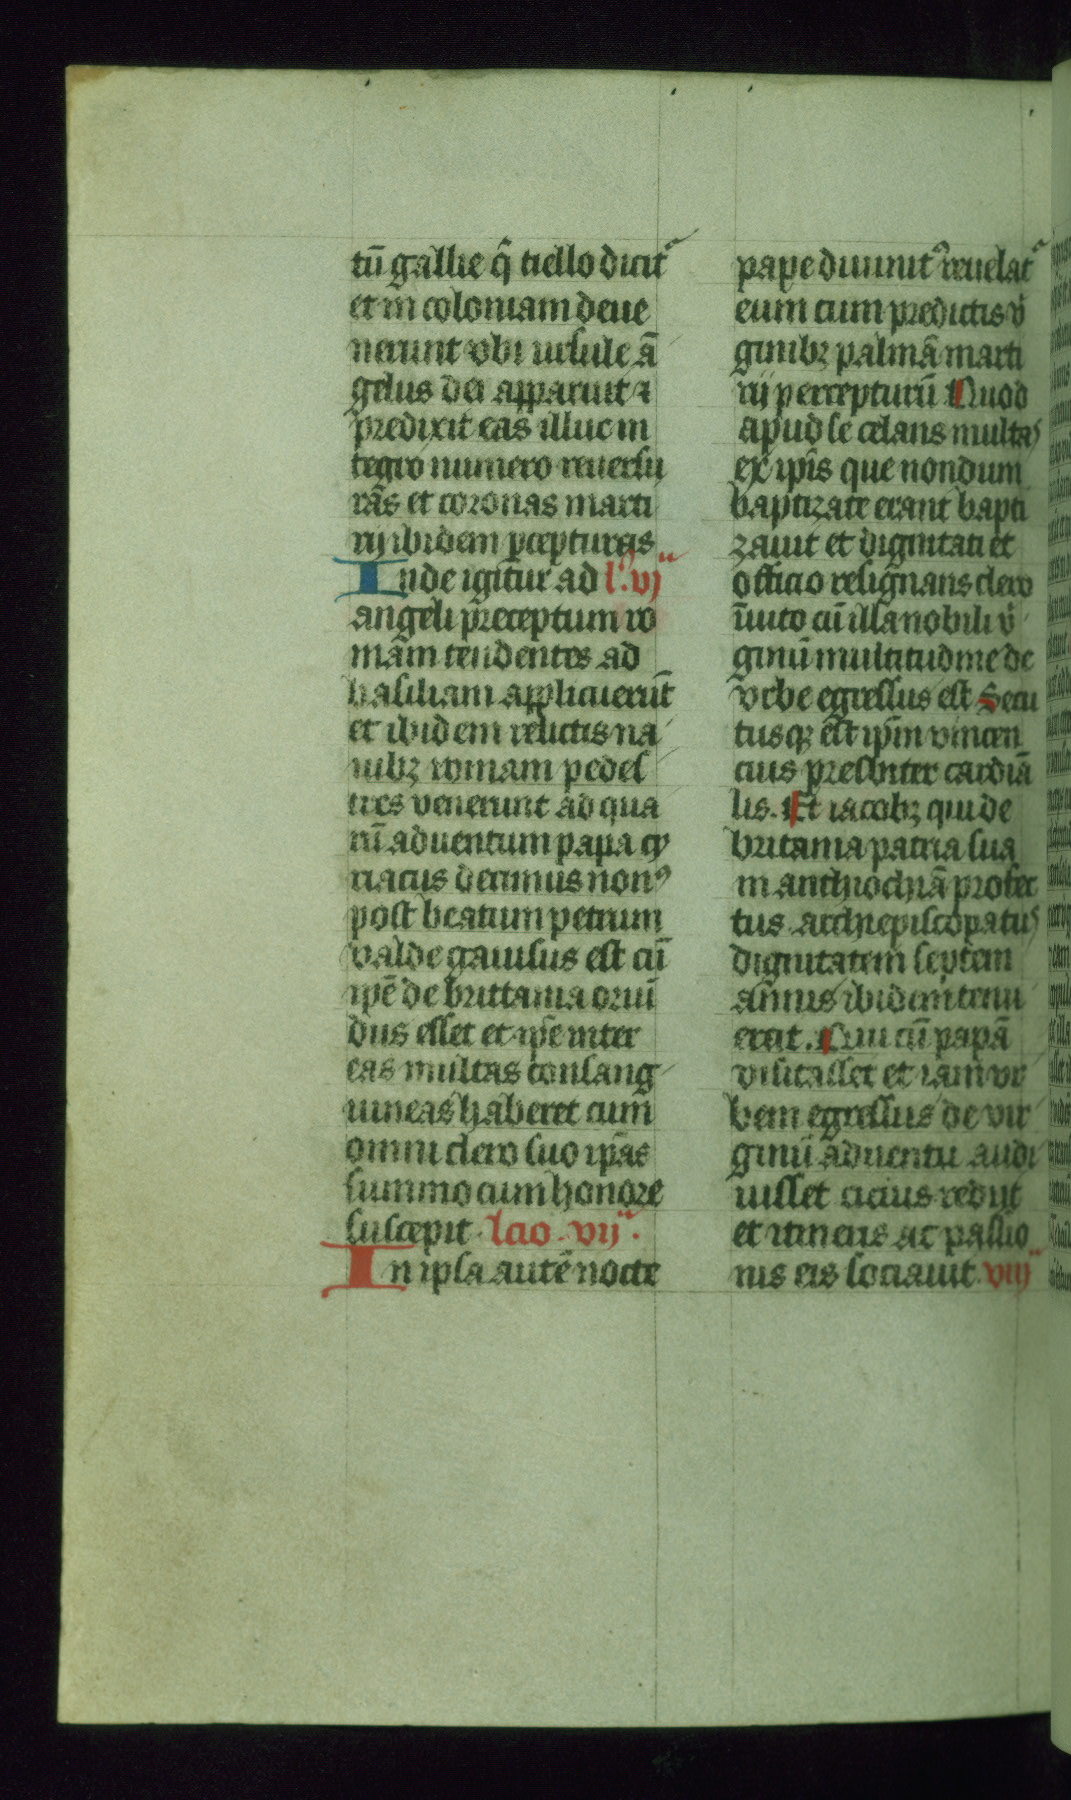 tū gallie q̄ tiello dicit᷑
et in coloniam deue
nerunt vbi ursule ā
gelus dei apparuit ⁊
predixit eas illuc in
tegro numero reuersu
rās et coronas marti
rij ibidem ꝑcepturas
Inde igitur ad l᷑. vjᵃ
angeli preceptum ro
mam tendentes ad
basiliam applicuerūt
et ibidem relictis na
uibꝫ romam pedes
tres venerunt ad qua
rū aduentum papa cy
riacus decimus nonꝰ
post beatum petrum
valde gauisus est cū
ipē de brittania oriū
dus esset et ipse inter
eas multas consang
uineas haberet cum
omni clero suo ipās
summo cum honore
suscepit lcio . vijᵃ .
In ipsa autē nocte
pape diuinitꝰ reuelat᷑
eum cum predictis v̓
ginibꝫ palmā marti
rij percepturū Quod
apud se celans multaˢ
ex ip̄is que nondum
baptizate erant bapti
zauit et dignitati et
officio resignans clero
īuito cū illa nobili v̓
ginū multitudine de
vrbe egressus est Secu
tusqꝫ est ip̄m vincen
cius presbiter cardiā
lis. Et iacobꝫ qui de
britania patria sua
in anthiochiā profec
tus archiepiscopatuˢ
dignitatem septem
annis ibidem tenu
erat. Qui cū papā
visitasset et iam vr
bem egressus de vir
ginū aduentu audi
uisset cicius redijt
et itineris ac passio
nis eis sociauit viijᵃ